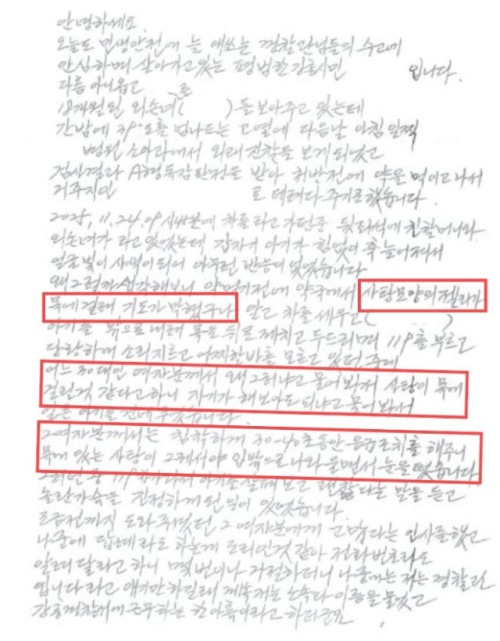 안녕하세요.
오늘도 민생안전에 늘 애쓰는 경찰관님들의 수고에
안심하며 살아가고 있는 평범한 김포시민 입니다.
다름 아니옵고
18개월 된 외손녀( )를 보아주고 있는데
간밤에 39°도를 넘나드는 고열에 다음날 아침 일찍
병원 소아과에서 외래진찰을 보게 되었고
검사결과 A형독감판정을 받아 귀가전에 약을 먹이고 나서
거주지인 로 데려다 주기로 했습니다.
2025, 11, 24. 09시 차를 타고 가던중 뒷좌석에 친할머니와
외손녀가 타고 있었는데 갑자기 아기가 힘없이 축 늘어져서
얼굴빛이 사색이 되어 아무런 반응이 없었습니다
왜 그럴까 생각해보니 약 먹이기전에 약국에서 사탕모양의 젤리가
목에 걸려 기도가 막혔구나 알고 차를 세우고( )
아기를 밖으로 내려 목을 뒤로 제치고 두드리며 119를 부르고
당황하며 소리지르고 어찌할바를 모르고 있던 중에
어느 30대인 여자분께서 왜 그러냐고 물어 봐서 사탕이 목에
걸린것 같다고 하니 자기가 해보아도 되냐고 물어 봐서
얼른 아기를 건네 주었습니다.
그 여자분께서는 침착하게 30~40초동안 응급조치를 해주니
목에 있는 사탕이 그제서야 입밖으로 나와 울면서 눈을 떴습니다
그러던 중 119가 와서 아기를 살펴보고 괜찮다는 말을 듣고
놀란가슴은 진정하게 된 일이 있었습니다.
조금전까지 도와주었던 그 여자분에게 고맙다는 인사를 했고
나중에 답례라도 하는게 도리인것 같아 전화번호라도
알려 달라고 하니 몇번이나 거절하더니 나중에는 저는 경찰관
입니다 라고 얘기만 하길래 재차 묻는 소속과 이름을 물었고
김포경찰서에 근무하는 한아름이라고 하더군요